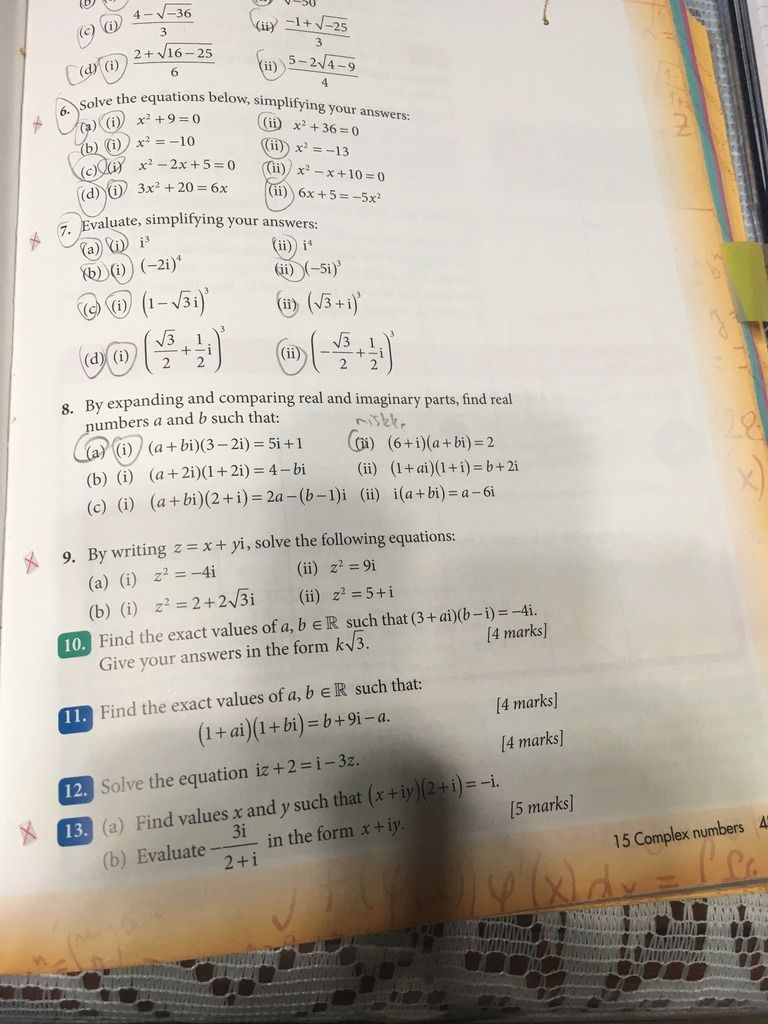 (c) (i) 4−√−36 / 3 (ii) −1+√−25 / 3
(d) (i) 2+√16−25 / 6 (ii) 5−2√4−9 / 4
6. Solve the equations below, simplifying your answers:
(a) (i) x² + 9 = 0 (ii) x² + 36 = 0
(b) (i) x² = −10 (ii) x² = −13
(c) (i) x² − 2x + 5 = 0 (ii) x² − x + 10 = 0
(d) (i) 3x² + 20 = 6x (ii) 6x + 5 = −5x²
7. Evaluate, simplifying your answers:
(a) (i) i³ (ii) i⁴
(b) (i) (−2i)⁴ (ii) (−5i)³
(c) (i) (1−√3i)³ (ii) (√3+i)³
(d) (i) (√3/2 + 1/2 i)³ (ii) (−√3/2 + 1/2 i)³
8. By expanding and comparing real and imaginary parts, find real
numbers a and b such that:
(a) (i) (a+bi)(3−2i) = 5i+1 (ii) (6+i)(a+bi) = 2
(b) (i) (a+2i)(1+2i) = 4−bi (ii) (1+ai)(1+i) = b+2i
(c) (i) (a+bi)(2+i) = 2a−(b−1)i (ii) i(a+bi) = a−6i
9. By writing z = x + yi, solve the following equations:
(a) (i) z² = −4i (ii) z² = 9i
(b) (i) z² = 2+2√3i (ii) z² = 5+i
10. Find the exact values of a, b ∈ ℝ such that (3+ai)(b−i) = −4i.
Give your answers in the form k√3. [4 marks]
11. Find the exact values of a, b ∈ ℝ such that:
(1+ai)(1+bi) = b+9i−a. [4 marks]
12. Solve the equation iz+2 = i−3z. [4 marks]
13. (a) Find values x and y such that (x+iy)(2+i) = −i.
(b) Evaluate −3i / 2+i in the form x+iy. [5 marks]
15 Complex numbers